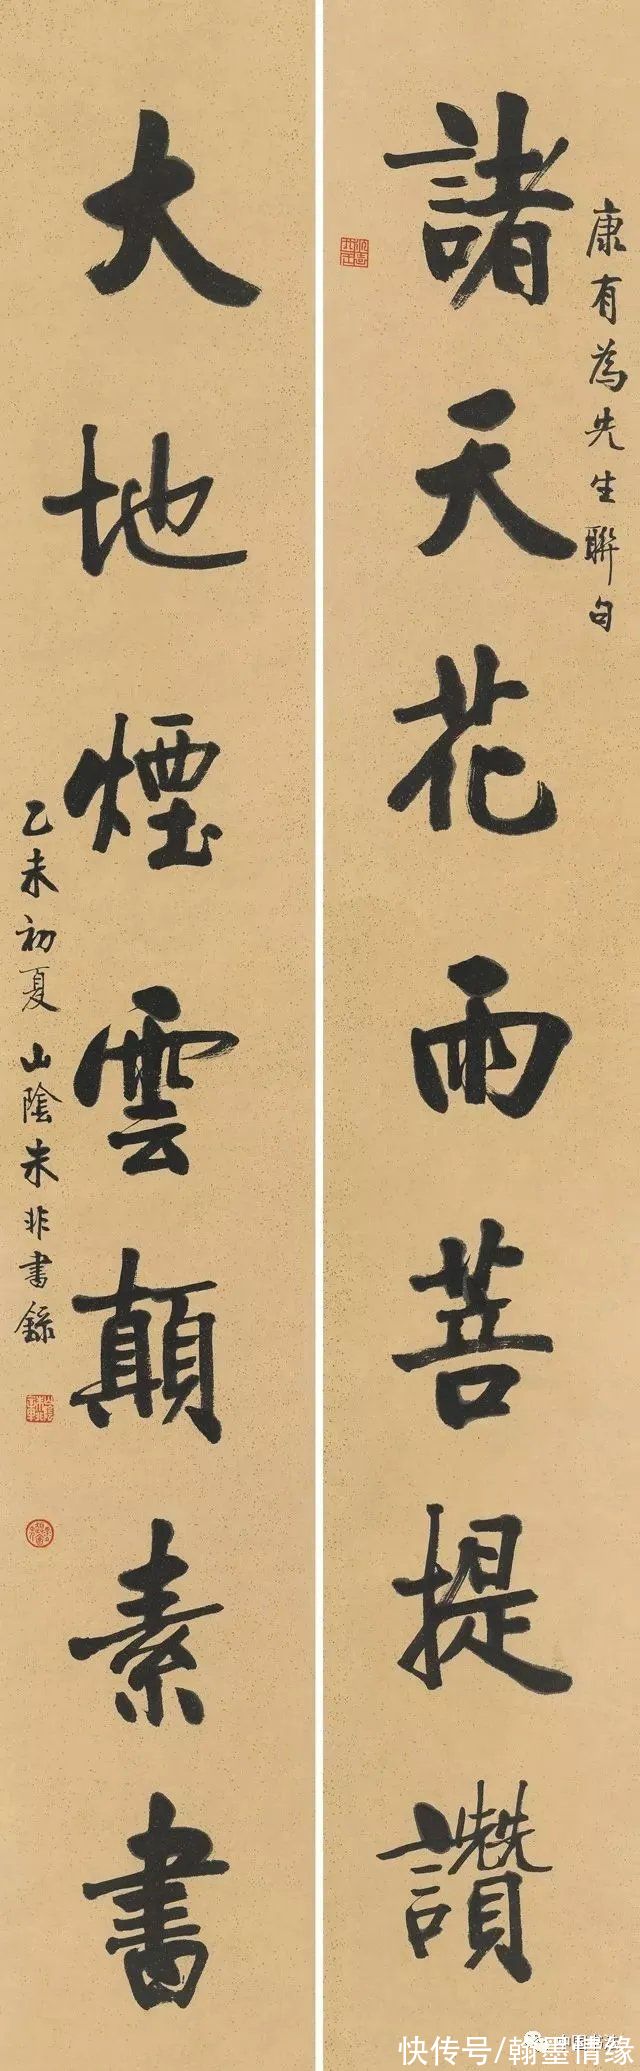 康有為先生聯句
諸天花雨菩提讚
大地煙雲顛素書
乙未初夏山陰朱非書錄
快传号/翰墨情缘